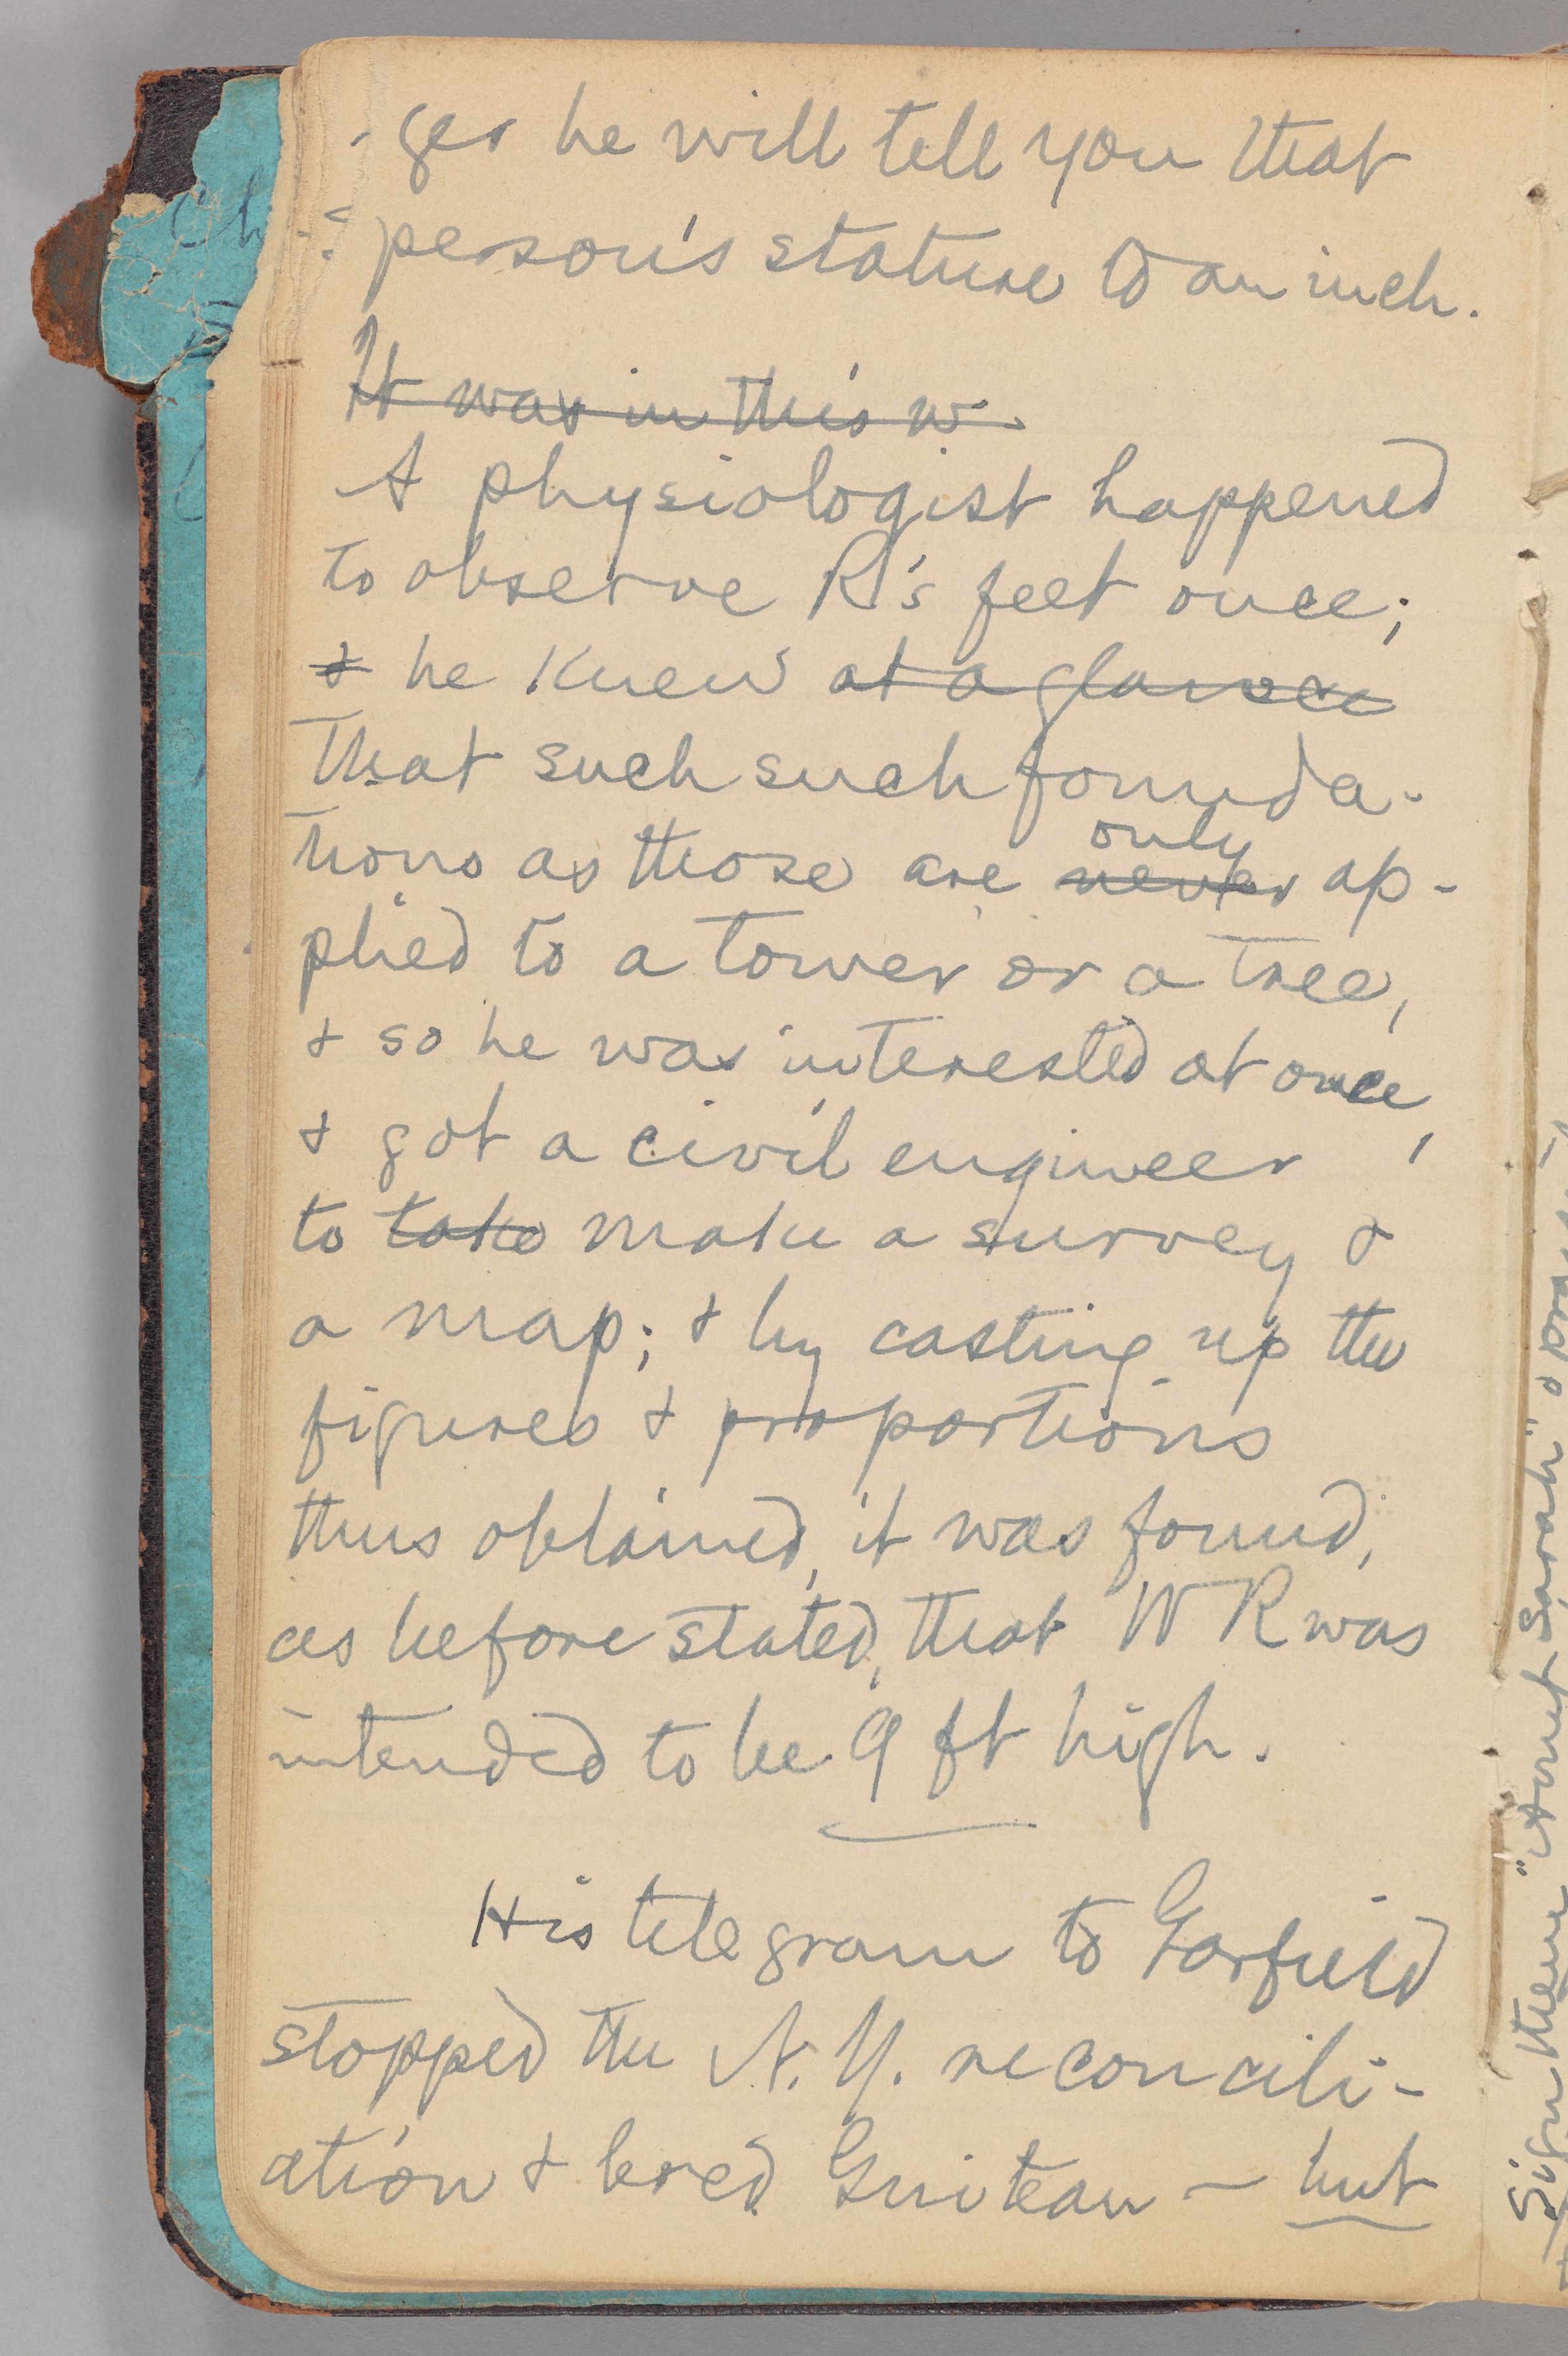 ger he will tell you that
person's stature to an inch.
It was in this w.
A physiologist happened
to observe R's feet once;
& he knew at a glance
that such such founda-
tions as those are never only ap-
plied to a tower or a tree,
& so he was interested at once,
& got a civil engineer
to take make a survey &
a map; & by casting up the
figures & proportions
thus obtained, it was found,
as before stated, that W R was
intended to be 9 ft high.
His telegram to Garfield
stopped the N. Y. reconcili-
ation & bred Guiteau — but
Sign them "Aunt Sarah"